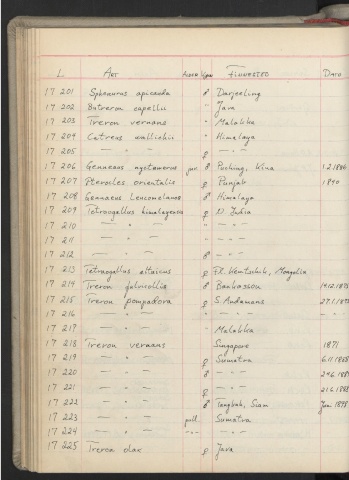 L. ART ALDER Kjøn FINNESTED DATO
17 201 Sphenurus apicauda ♂ Darjeeling
17 202 Butreron capellii " Java
17 203 Treron vernans " Malakka
17 204 Catreus wallichii " Himalaya
17 205 — " — ♀ — " —
17 206 Gennaeus nyctemerus juv. ♂ Kina
17 207 Pterocles orientalis ♀ Punjab 1890
17 208 Gennaeus Leucomelanos ♂ Himalaya
17 209 Tetraogallus himalayensis ♀ N India
17 210 — " — " — " —
17 211 — " — " — " —
17 212 — " — ♂ — " —
17 213 Tetraogallus altaicus ♀ Fl. Kemtschik, Mongolia
17 214 Treron fulvicollis ♂
17 215 Treron pompadora ♀ S. Andamans
17 216 — " — " — " —
17 217 — " — " Malakka
17 218 Treron vernans Singapore 1871
17 219 — " — ♀ Sumatra
17 220 — " — ♂ — " —
17 221 — " — ♀ — " —
17 222 — " — ♂ Siam
17 223 — " — pull. Sumatra
17 224 — " — — " — — " —
17 225 Treron olax ♀ Java